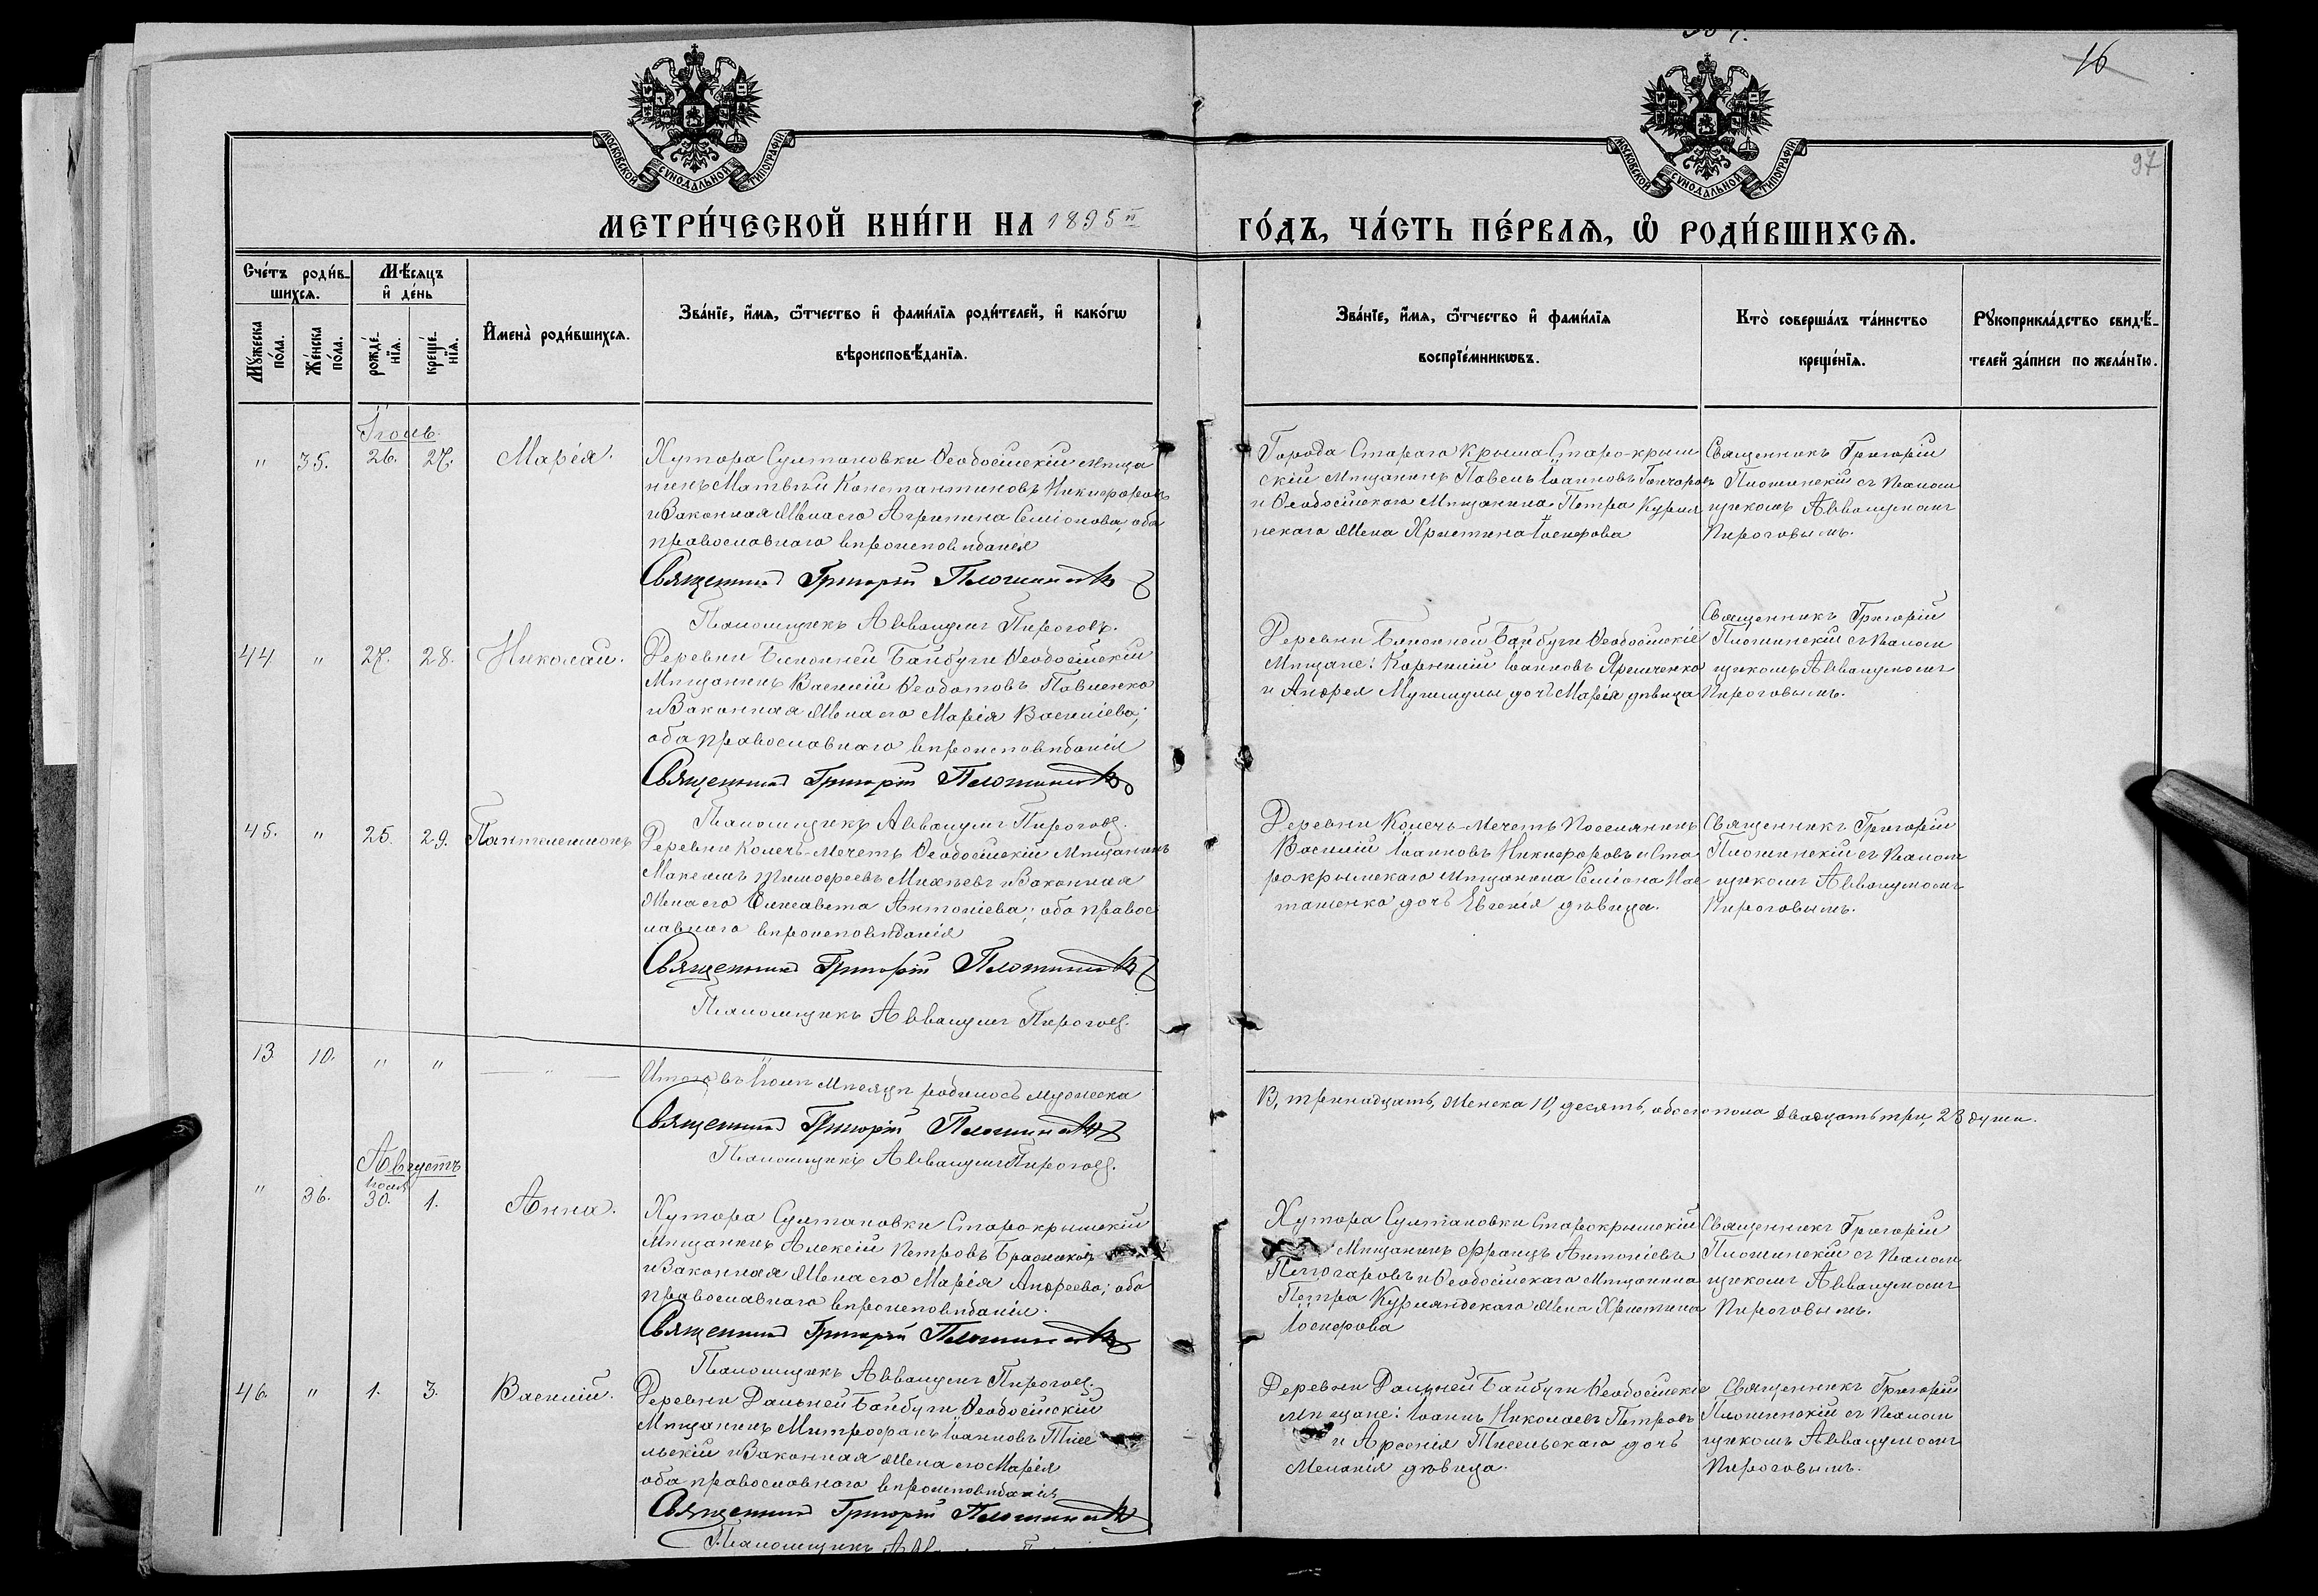 16
97
МОСКОВСКОЙ СѴНОДАЛЬНОЙ ТИПОГРАФІИ
МОСКОВСКОЙ СѴНОДАЛЬНОЙ ТИПОГРАФІИ
МЕТРИ́ЧЕСКОЙ КНИ́ГИ НА 1895 й
ГО́ДЪ, ЧА́СТЬ ПЕ́РВАЯ, Ѡ РОДИ́ВШИХСЯ.
Сче́тъ роди́в-
шихся.
Мѣ́сяцъ
и де́нь
Му́жеска по́ла.
Же́нска по́ла.
рожде́-
нїя.
креще́-
нїя.
И҆мена̀ роди́вшихся.
Зва́нїе, и҆́мя, ѿтчество и҆ фами́лїя роди́телей, и҆ како́гѡ
вѣроисповѣ́данїя.
Зва́нїе, и҆́мя, ѿтчество и҆ фами́лїя
воспрїе́мникѡвъ.
Кто̀ соверша́лъ та́инство
креще́нїя.
Рꙋкоприкла́дство свидѣ́-
телей за́писи по жела́нїю.
Іюль.
" 35. 26. 27. Марія.
Хутора Султановки Ѳеодосійскій мѣща
нинъ Матвѣй Константиновъ Никифоровъ
и законная жена его Агрипина Симонова оба
православнаго вѣроисповѣданія
Священникъ Григорій
Псаломщикъ Аввакумъ Пироговъ.
Города Стараго Крыма Старо-крым
скій мѣщанинъ Павелъ Іоанновъ Гончаровъ
и Ѳеодосійскаго мѣщанина Петра Курлян
скаго жена Христина Іосифова
Священникъ Григорій
съ псалом
щикомъ Аввакумомъ
Пироговымъ.
44 " 27. 28. Николай.
Деревни Ближней Байбуги Ѳеодосійскій
мѣщанинъ Василій Ѳеодотовъ Павленко
и законная жена его Марія Васильева;
оба православнаго вѣроисповѣданія
Священникъ Григорій
Псаломщикъ Аввакумъ Пироговъ.
Деревни Ближней Байбуги Ѳеодосійскіе
мѣщане: Корнилій Іоанновъ Яремченко
и Андрея дочь Марія дѣвица
Священникъ Григорій
съ псалом
щикомъ Аввакумомъ
Пироговымъ.
45. " 25. 29. Пантелеимонъ
Деревни Колечь-Мечеть Ѳеодосійскій мѣщанинъ
Максимъ Тимофеевъ Михѣевъ и законная
жена его Елисавета Антоніева; оба правос
лавнаго вѣроисповѣданія
Священникъ Григорій
Псаломщикъ Аввакумъ Пироговъ.
Деревни Колечь-Мечеть поселянинъ
Василій Іоанновъ Никифоровъ и Ста
рокрымскаго мѣщанина Симона Нас
ташенко дочь Евгенія дѣвица.
Священникъ Григорій
съ псалом
щикомъ Аввакумомъ
Пироговымъ.
13. 10. " " "
Итого въ Іюлѣ мѣсяцѣ родилось мужеска
13, тринадцать, женска 10, десять, обоего пола двадцать три, 23 души.
Священникъ Григорій
Псаломщикъ Аввакумъ Пироговъ.
Августъ
" 36. Іюля 30. 1. Анна.
Хутора Султановки Старокрымскій
мѣщанинъ Алексій Петровъ
и законная жена его Марія Андреева; оба
православнаго вѣроисповѣданія.
Священникъ Григорій
Псаломщикъ Аввакумъ Пироговъ.
Хутора Султановки Старокрымскій
мѣщанинъ Францъ Антоніевъ
и Ѳеодосійскаго мѣщанина
Петра Курляндскаго жена Христина
Іосифова
Священникъ Григорій
съ псалом
щикомъ Аввакумомъ
Пироговымъ.
46. " 1. 3. Василій.
Деревни Дальней Байбуги Ѳеодосійскій
мѣщанинъ Митрофанъ Іоанновъ Кисе
льскій и законная жена его Марія
оба православнаго вѣроисповѣданія
Священникъ Григорій
Псаломщикъ
Деревни Дальней Байбуги Ѳеодосійскіе
мѣщане: Іоаннъ Николаевъ Петровъ
и Арсенія Кисельскаго дочь
Меланія дѣвица.
Священникъ Григорій
съ псалом
щикомъ Аввакумомъ
Пироговымъ.